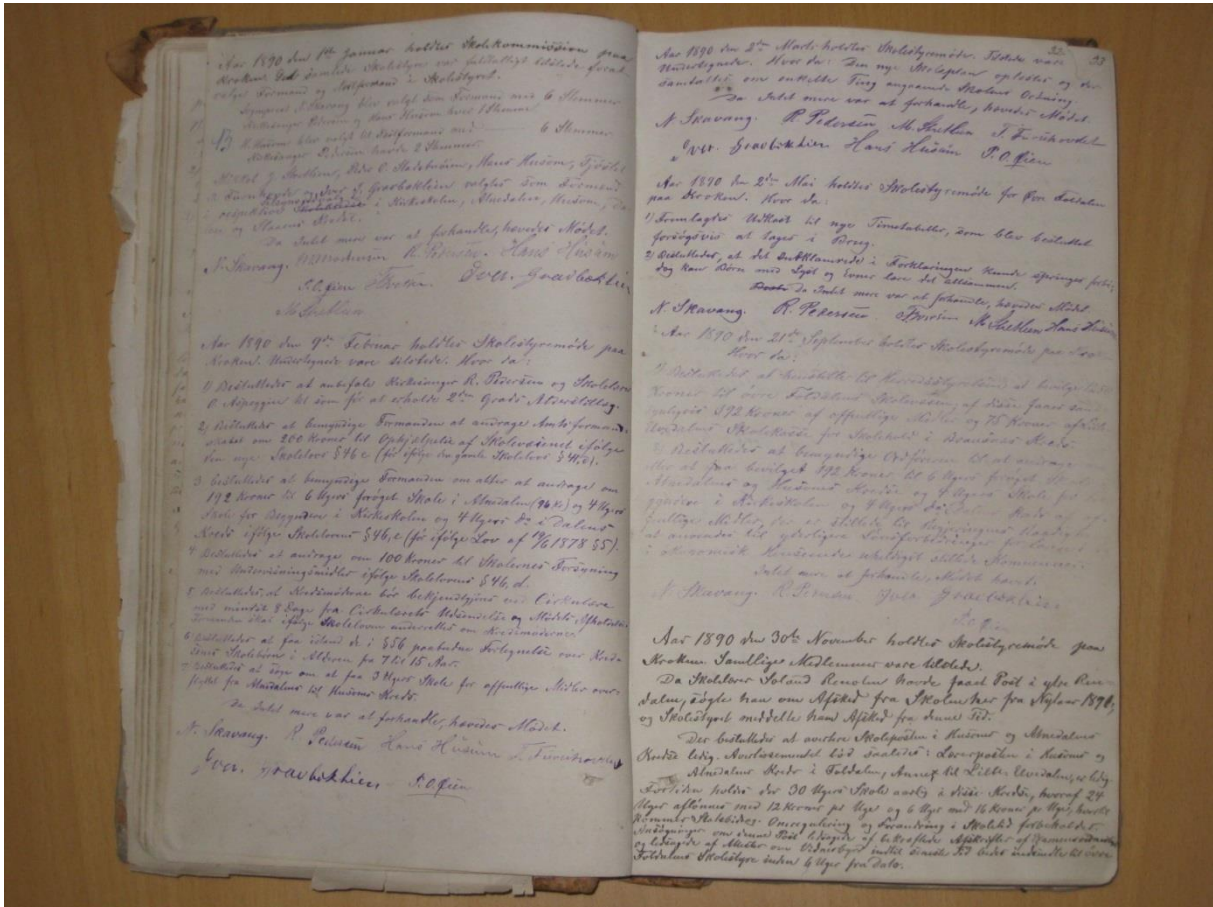 Aar 1890 den 1ste Januar holdtes Skolekommission paa
Kroken. Det samlede Skolestyre var fuldtalligt tilstede forat
valgte Formand og Næstformand i Skolestyret.
Sogneprest N. Skavang blev valgt som Formand med 6 Stemmer
Kirkesanger Pedersen og Hans Husum hver 1 Stemme
H. Husum blev valgt til Næstformand med 6 Stemmer
Kirkesanger Pedersen havde 2 Stemmer
Mikkel J. Streitlien, Peder O. Stadsbuøien, Hans Husum,
og Iver J. Gravbæklien valgtes som Formænd
i Kirkeskolen, Atnedalens, Husums,
og Kreds.
Da Intet mere var at forhandle, hævedes Mødet.
N. Skavang. R. Pedersen. Hans Husum
P. O. Øien Iver. Gravbeklien
M Streitlien
Aar 1890 den 9de Februar holdtes Skolestyremøde paa
Kroken. Undertegnede vare tilstede. Hvor da:
1) Besluttedes at anbefale Kirkesanger R. Pedersen og Skolelærer
O. Aspeggien til som før at erholde 2den Grads Alderstillæg.
2) Besluttedes at bemyndige Formanden at andrage Amtsformand-
skabet om 200 Kroner til Ophjælpelse af Skolevæsenet ifølge
den nye Skolelovs § 46 c (før ifølge den gamle Skolelovs § 41,c).
3 Besluttedes at bemyndige Formanden om atter at andrage om
192 Kroner til 6 Ugers forøget Skole i Atnedalen (96 Kr) og 4 Ugers
Skole for Begyndere i Kirkeskolen og 4 Ugers Do i Dalens
Kreds ifølge Skolelovens § 46, c (før ifølge Lov af 19/6 1878 § 5).
4 Besluttedes at andrage om 100 Kroner til Skolernes Forsyning
med Undervisningsmidler ifølge Skolelovens § 46, d.
5 Besluttedes, at Kredsmøderne bør bekjendtgjøres ved Cirkulære
med mindst 8 Dage fra Cirkulærets Udsendelse og Mødets Afholdelse
Formanden skal ifølge Skoleloven underrettes om Kredsmøderne.
6 Besluttedes at faa istand de i § 56 paabudne Fortegnelse over Kreds-
enes Skolebørn i Alderen fra 7 til 15 Aar.
7 Besluttedes at søge om at faa 3 Ugers Skole for offentlige Midler over-
flyttet fra Atnedalens til Husums Kreds.
Da Intet mere var at forhandle, hævedes Mødet.
N. Skavang. R. Pedersen Hans Husum T. Furuhovde
Iver. Gravbeklien P. O. Øien
33
Aar 1890 den 2den Marts holdtes Skolestyremøde. Tilstede vare
Undertegnede. Hvor da: Den nye Skoleplan oplæstes og der
samtaltes om enkelte Ting angaaende Skolens Ordning.
Da Intet mere var at forhandle, hævedes Mødet.
N. Skavang. R. Pedersen M. Streitlien T. Furuhovdet
Iver. Gravbeklien Hans Husum P. O. Øien
Aar 1890 den 2den Mai holdtes Skolestyremøde for Øvre Foldalen
paa Kroken. Hvor da:
1) Fremlagdes Udkast til nye Timetabeller, som blev besluttet
forsøgsvis at tages i Brug.
2) Besluttedes, at det indklamrede i Forklaringen kunde springes forbi,
dog kan Børn med Lyst og Evner lære det altsammen.
Da Intet mere var at forhandle, hævedes Mødet.
N. Skavang. R. Pedersen M. Streitlien Hans Husum
Aar 1890 den 21de September holdtes Skolestyremøde paa Kroken
Hvor da:
1) Besluttedes, at henstille til Herredsstyrelsen at bevilge
Kroner til øvre Foldalens Skolevæsen, af disse faaes
192 Kroner af offentlige Midler og 75 Kroner af Lille
Elvedalens Skolekasse for Skolehold i Kreds.
2) Besluttedes at bemyndige Ordføreren til at andrage om
at faa bevilget 192 Kroner til 6 Ugers forøget Skole
Atnedalens og Husums Kredse og 4 Ugers Skole for
i Kirkeskolen og 4 Ugers Do i Dalens Kreds af
offentlige Midler, der er stillede til Regjeringens Raadighed
at anvendes til yderligere Lønsforbedringer for Lærere
i økonomisk Henseende uheldigst stillede Kommuner.
Intet mere at forhandle, Mødet hævet.
N. Skavang. R. Pedersen. Iver Gravbeklien.
P. O. Øien
Aar 1890 den 30te November holdtes Skolestyremøde paa
Kroken. Samtlige Medlemmer vare tilstede.
Da Skolelærer Roland Renolen havde faaet Post i ytre Ren-
dalen, søgte han om Afsked fra Skolen her fra Nytaar 1891,
og Skolestyret meddelte ham Afsked fra denne Tid.
Det besluttedes at avertere Skoleposten i Husums og Atnedalens
Kredse ledig. Avertissementet lød saaledes: Lærerposten i Husums og
Atnedalens Kredse i Foldalen, Annex til Lille-Elvedalen, er ledig.
For Tiden holdes der 30 Ugers Skole aarlig i disse Kredse, hvoraf 24
Uger aflønnes med 12 Kroner pr Uge og 6 Uger med 16 Kroner pr Uge, hvortil
kommer Statsbidrag. Omregulering og Forandring i Skoletid forbeholdes.
Ansøgninger om denne Post ledsagede af bekræftede Afskrifter af Examensvidnesbyrd
og ledsagede af Attester om Vidnesbyrd indtil seneste Tid bedes indsendte til øvre
Foldalens Skolestyre inden 6 Uger fra Dato.